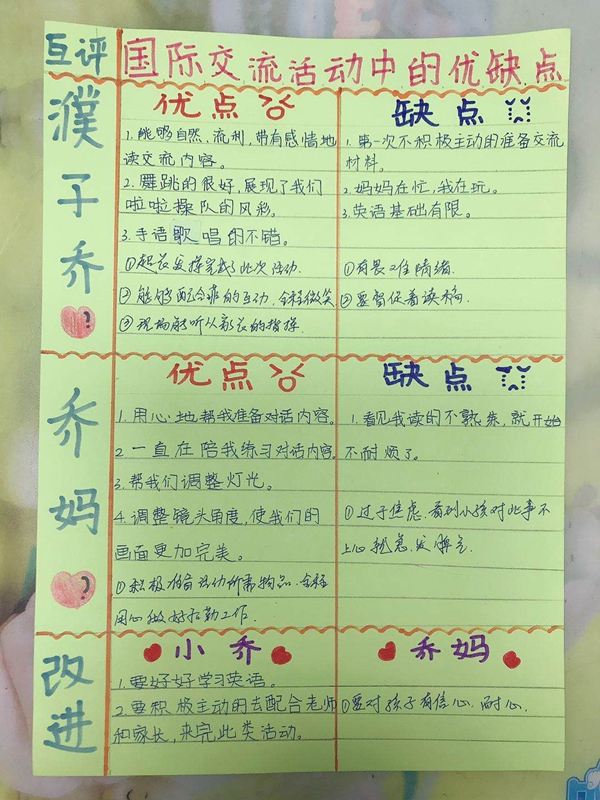 互评
国际交流活动中的优缺点
濮子乔
优点
1.能够自然、流利,带有感情地
读交流内容。
2.舞跳的很好,展现了我们
啦啦操队的风彩。
3.手语歌唱的不错。
①超长发挥完成了此次活动.
②能够配合乖的互动,全程微笑
③现场能听从家长的指挥.
缺点
1.第一次不积极主动的准备交流
材料。
2.妈妈在忙,我在玩。
3.英语基础有限。
①有畏难情绪.
②要督促着读稿.
乔妈
优点
1.用心地帮我准备对话内容。
2.一直在陪我练习对话内容。
3.帮我们调整灯光。
4.调整镜头角度,使我们的
画面更加完美。
①积极准备活动所需物品.全程
用心做好后勤工作.
缺点
1.看见我读的不熟练,就开始
不耐烦了。
①过于焦虑.看到小孩对此事不
上心就急.发脾气.
改进
小乔
1.要好好学习英语。
2.要积极主动的去配合老师
和家长,来完此类活动。
乔妈
①要对孩子有信心.耐心.